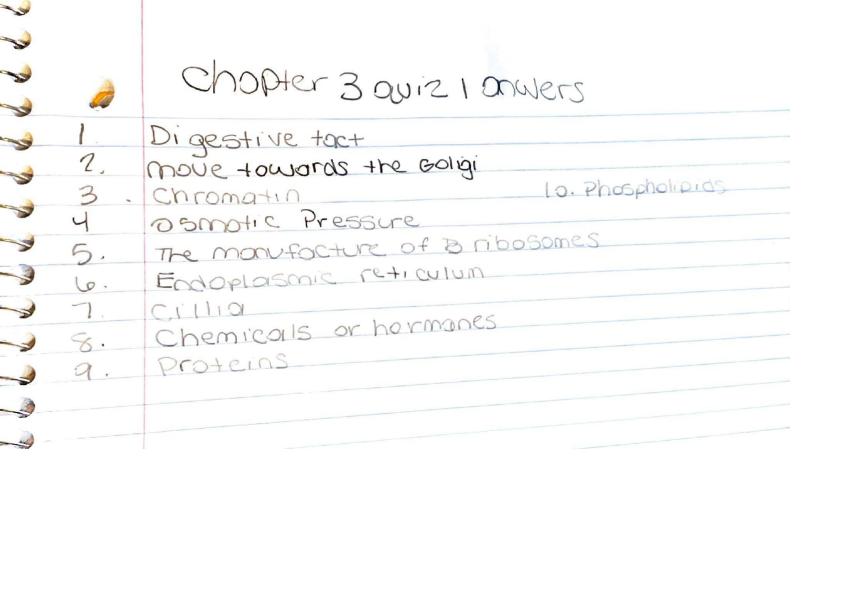 Chapter 3 Quiz 1 Anwers
1. Digestive tact
2. move towards the Golgi
3. Chromatin
10. Phospholipids
4 osmotic Pressure
5. The manufacture of ribosomes
6. Endoplasmic reticulum
7. Cillia
8. Chemicals or hormones
9. Proteins